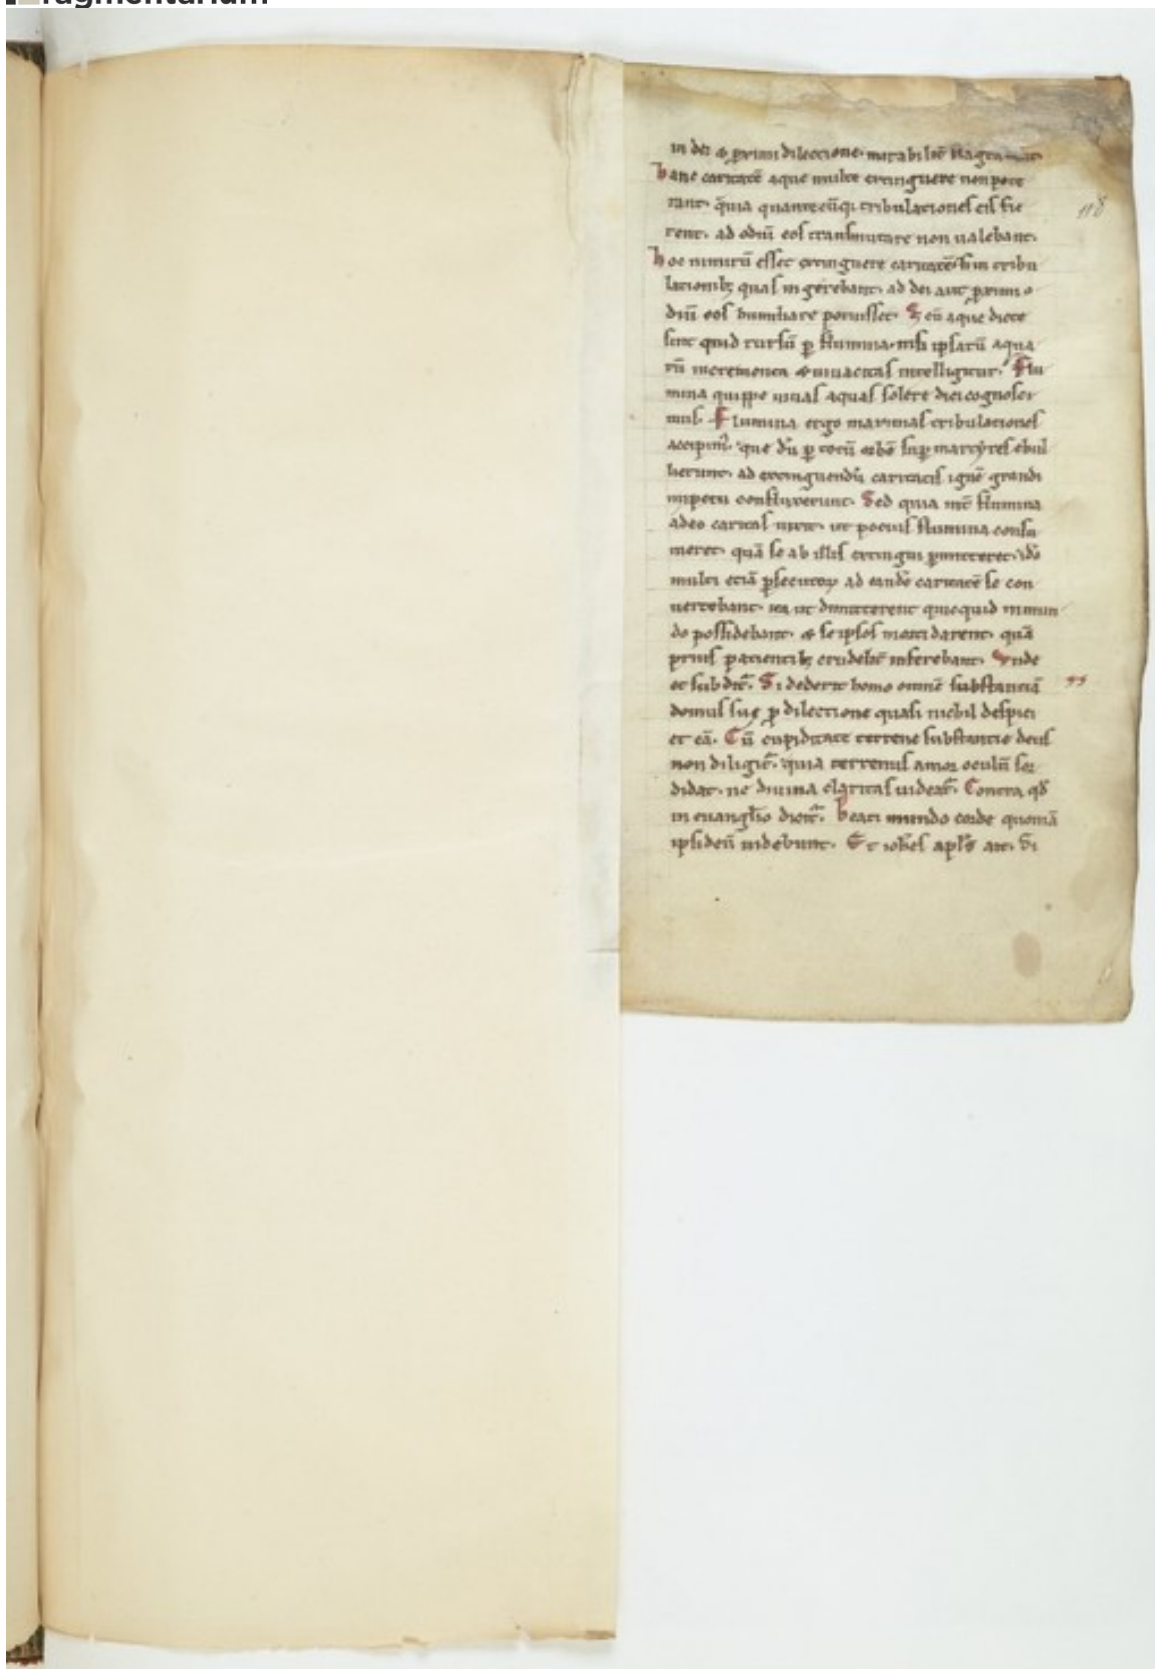 fragmentarium
in dei & ꝓximi dilectione· mirabilit̄ flagra
hanc caritatē aque multe extinguere non pote
rant· quia quantecūq; tribulationes eis fie
rent· ad odiū eos transmutare non ualebant·
118
hoc nimirū esset extinguere caritatē si in tribu
lationib; quas ingerebant· ad dei aut ꝓximi o
diū eos humiliare potuisset· Sꝫ cū aque dicte
sint quid rursū ꝑ flumina· nisi ipsarū aqua
rū incrementa & uiuacitas intelligitur· Flu
mina quippe uiuas aquas solere dici cognosci
mus· Flumina ergo maximas tribulationes
accipim᷒· que dū ꝑ totū orbē suꝑ martyres ebul
lierunt· ad extinguendū caritatis ignē grandi
impetu confluxerunt· Sed quia int̄ flumina
adeo caritas uixit· ut potius flumina consu
meret· quā se ab illis extingui ꝑmitteret· ido
multi etiā ꝑsecutoꝝ ad eandē caritatē se con
uertebant· ita ut dimitterent quicquid in mun
do possidebant· & se ipsos morti darent· quā
prius patientib; crudelit̄ inferebant· Vnde
et subdit᷑· Si dederit homo omnē substantiā
domus suę ꝓ dilectione quasi nichil despici
et eā· Cū cupiditate terrene substantie deus
non diligit᷑· quia terrenus amor oculū sor
didat· ne diuina claritas uideat᷑· Contra qd̄
in euangl̄io dicit᷑· Beati mundo corde quoniā
ipsi deū uidebunt· Et iohēs apl̄s ait· Si